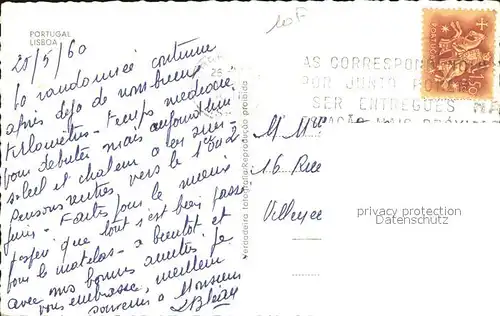 PORTUGAL
LISBOA
20F
20/5/60
La randonnée continue
après déjà de nombreux
Kilomètres - Temps médiocre
pour débuter mais aujourd'hui
soleil et chaleur
Pensons rentrer vers le 1er ou 2
juin - Faites pour le mieux
J'espère que tout s'est bien passé
pour le matelas - à bientôt et
avec nos bonnes amitiés je
vous embrasse, meilleurs
souvenirs à Monsieur
Verdadeira fotografia/Reprodução proibida
AS CORRESPOND
POR JUNTO PO
SER ENTREGUES
PORTUGAL
1$50
M. Mme
16 Rue
privacy protection
Datenschutz